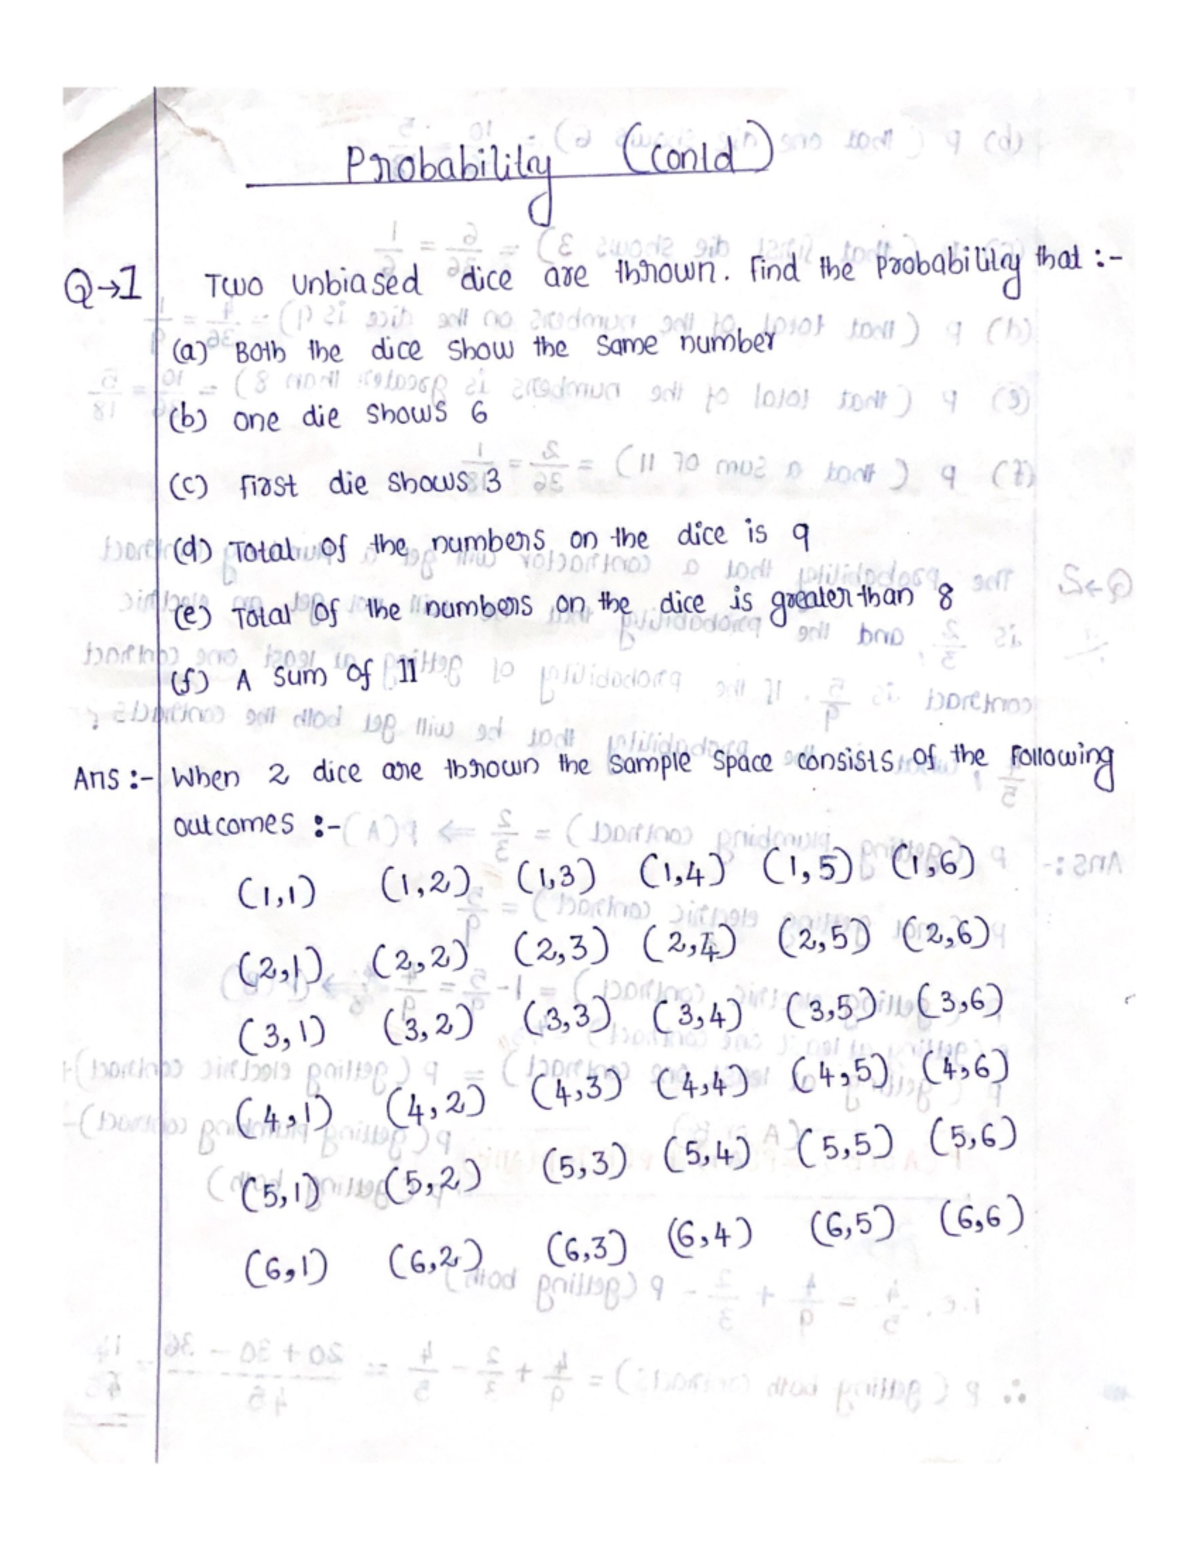 Probability (Contd)
Q→1 Two unbiased dice are thrown. Find the Probability that :-
(a) Both the dice show the same number
(b) one die shows 6
(c) first die shows 3
(d) Total of the numbers on the dice is 9
(e) Total of the numbers on the dice is greater than 8
(f) A sum of 11
Ans :- When 2 dice are thrown the sample space consists of the following
outcomes :-
(1,1) (1,2) (1,3) (1,4) (1,5) (1,6)
(2,1) (2,2) (2,3) (2,4) (2,5) (2,6)
(3,1) (3,2) (3,3) (3,4) (3,5) (3,6)
(4,1) (4,2) (4,3) (4,4) (4,5) (4,6)
(5,1) (5,2) (5,3) (5,4) (5,5) (5,6)
(6,1) (6,2) (6,3) (6,4) (6,5) (6,6)